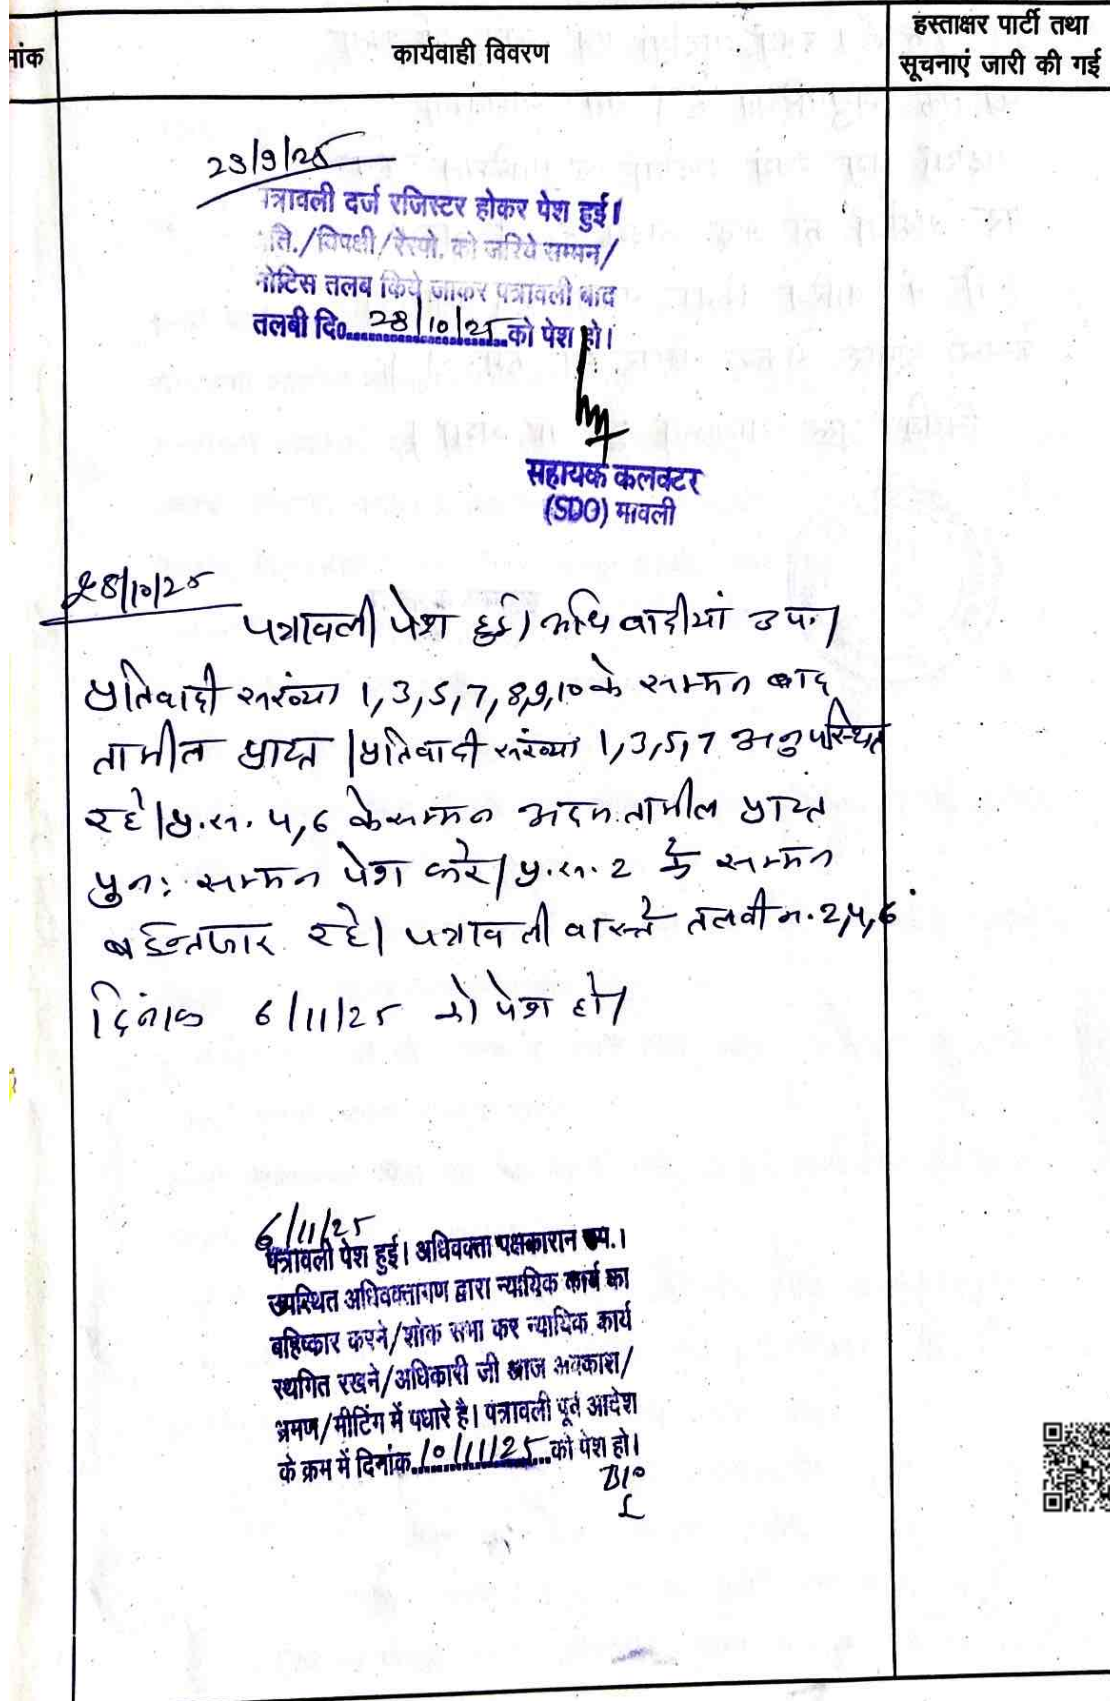 हस्ताक्षर पार्टी तथा
नांक कार्यवाही विवरण सूचनाएं जारी की गई
23/9/25
पत्रावली दर्ज रजिस्टर होकर पेश हुई।
प्रति./विपक्षी/रेस्पो. को जरिये सम्मन/
नोटिस तलब किये जाकर पत्रावली बाद
तलबी दि० 28/10/25 को पेश हो।
सहायक कलक्टर
(SDO) मावली
28/10/25
पत्रावली पेश हुई। अधि वादीयां उप।
प्रतिवादी संख्या 1,3,5,7,8,9,10 के सम्मन बाद
तामील प्राप्त। प्रतिवादी संख्या 1,3,5,7 अनुपस्थित
रहे। प्र.सं. 4,6 के सम्मन अदम तामील प्राप्त
पुनः सम्मन पेश करे। प्र.सं. 2 के सम्मन
बइन्तजार रहे। पत्रावली वास्ते तलबी न. 2,4,6
दिनांक 6/11/25 को पेश हो।
6/11/25
पत्रावली पेश हुई। अधिवक्ता पक्षकारान उप.।
उपस्थित अधिवक्तागण द्वारा न्यायिक कार्य का
बहिष्कार करने/शोक सभा कर न्यायिक कार्य
स्थगित रखने/अधिकारी जी आज अवकाश/
भ्रमण/मीटिंग में पधारे है। पत्रावली पूर्व आदेश
के क्रम में दिनांक 10/11/25 को पेश हो।